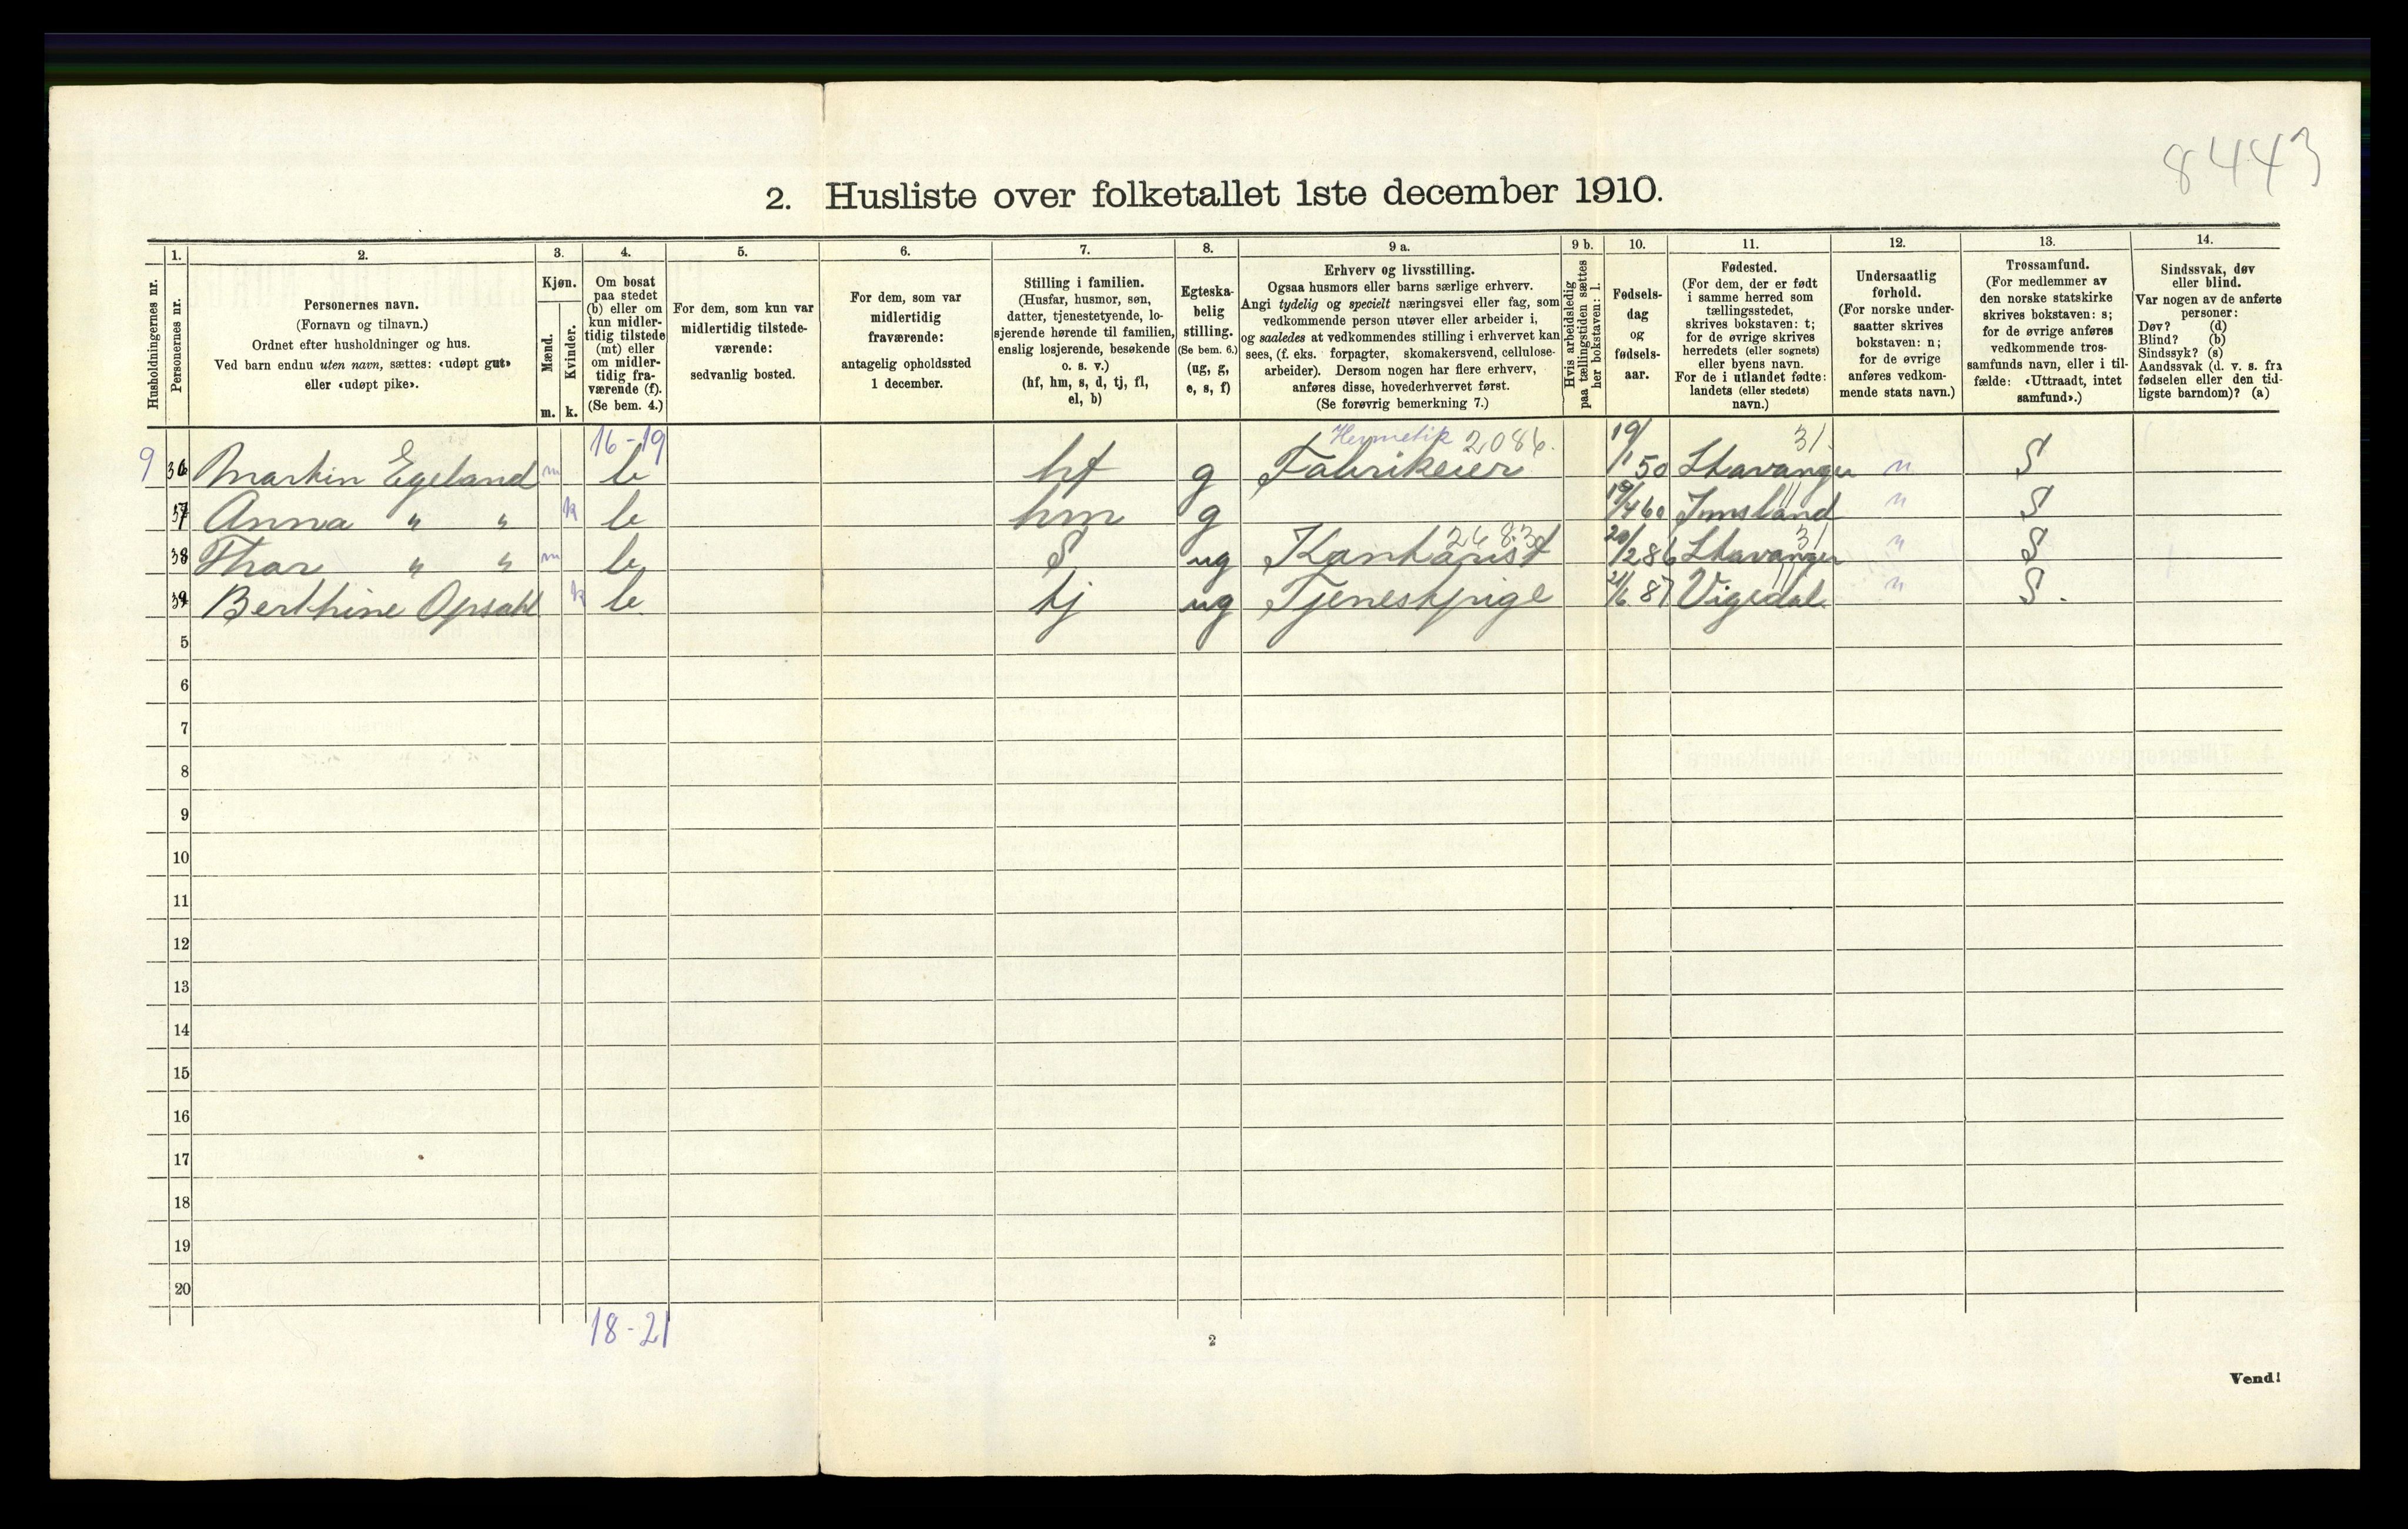 8443
2. Husliste over folketallet 1ste december 1910.
Husholdningernes nr.
1.
Personernes nr.
2.
Personernes navn.
(Fornavn og tilnavn.)
Ordnet efter husholdninger og hus.
Ved barn endnu uten navn, sættes: «udøpt gut»
eller «udøpt pike».
3.
Kjøn.
Mænd.
Kvinder.
m. k.
4.
Om bosat
paa stedet
(b) eller om
kun midler-
tidig tilstede
(mt) eller
om midler-
tidig fra-
værende (f).
(Se bem. 4.)
5.
For dem, som kun var
midlertidig tilstede-
værende:
sedvanlig bosted.
6.
For dem, som var
midlertidig
fraværende:
antagelig opholdssted
1 december.
7.
Stilling i familien.
(Husfar, husmor, søn,
datter, tjenestetyende, lo-
sjerende hørende til familien,
enslig losjerende, besøkende
o. s. v.)
(hf, hm, s, d, tj, fl,
el, b)
8.
Egteska-
belig
stilling.
(Se bem. 6.)
(ug, g,
e, s, f)
9 a.
Erhverv og livsstilling.
Ogsaa husmors eller barns særlige erhverv.
Angi tydelig og specielt næringsvei eller fag, som
vedkommende person utøver eller arbeider i,
og saaledes at vedkommendes stilling i erhvervet kan
sees, (f. eks. forpagter, skomakersvend, cellulose-
arbeider). Dersom nogen har flere erhverv,
anføres disse, hovederhvervet først.
(Se forøvrig bemerkning 7.)
9 b.
Hvis arbeidsledig
paa tællingstiden sættes
her bokstaven: l.
10.
Fødsels-
dag
og
fødsels-
aar.
11.
Fødested.
(For dem, der er født
i samme herred som
tællingsstedet,
skrives bokstaven: t;
for de øvrige skrives
herredets (eller sognets)
eller byens navn.
For de i utlandet fødte:
landets (eller stedets)
navn.)
12.
Undersaatlig
forhold.
(For norske under-
saatter skrives
bokstaven: n;
for de øvrige
anføres vedkom-
mende stats navn.)
13.
Trossamfund.
(For medlemmer av
den norske statskirke
skrives bokstaven: s;
for de øvrige anføres
vedkommende tros-
samfunds navn, eller i til-
fælde: «Uttraadt, intet
samfund».)
14.
Sindssvak, døv
eller blind.
Var nogen av de anførte
personer:
Døv? (d)
Blind? (b)
Sindssyk? (s)
Aandssvak (d. v. s. fra
fødselen eller den tid-
ligste barndom)? (a)
16-19 Hermetik 2086. 31.
9 36 Martin Egeland m b hf g Fabrikeier 19/1 50 Stavanger n S
11
37 Anna " " k b hm g 19/4 60 Imsland n S
2683 31
38 Thor " " m b S ug Kontorist 20/2 86 Stavanger n S
11
39 Berthine Opsahl k b tj ug Tjenestpige 21/6 87 Vigedal n S.
5
6
7
8
9
10
11
12
13
14
15
16
17
18
19
20
18-21
2
Vend!